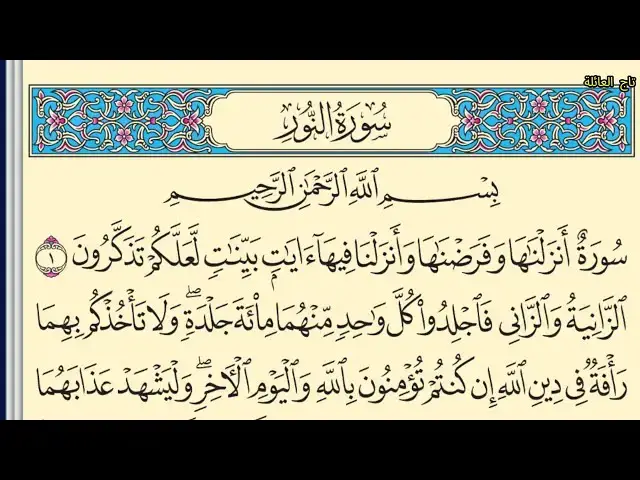 تاج العائلة
سُورَةُ النُّورِ
بِسْمِ ٱللَّهِ ٱلرَّحْمَٰنِ ٱلرَّحِيمِ
سُورَةٌ أَنزَلْنَٰهَا وَفَرَضْنَٰهَا وَأَنزَلْنَا فِيهَآ ءَايَٰتٍۭ بَيِّنَٰتٍ لَّعَلَّكُمْ تَذَكَّرُونَ ١
ٱلزَّانِيَةُ وَٱلزَّانِى فَٱجْلِدُوا۟ كُلَّ وَٰحِدٍ مِّنْهُمَا مِا۟ئَةَ جَلْدَةٍ ۖ وَلَا تَأْخُذْكُم بِهِمَا
رَأْفَةٌ فِى دِينِ ٱللَّهِ إِن كُنتُمْ تُؤْمِنُونَ بِٱللَّهِ وَٱلْيَوْمِ ٱلْءَاخِرِ ۖ وَلْيَشْهَدْ عَذَابَهُمَا